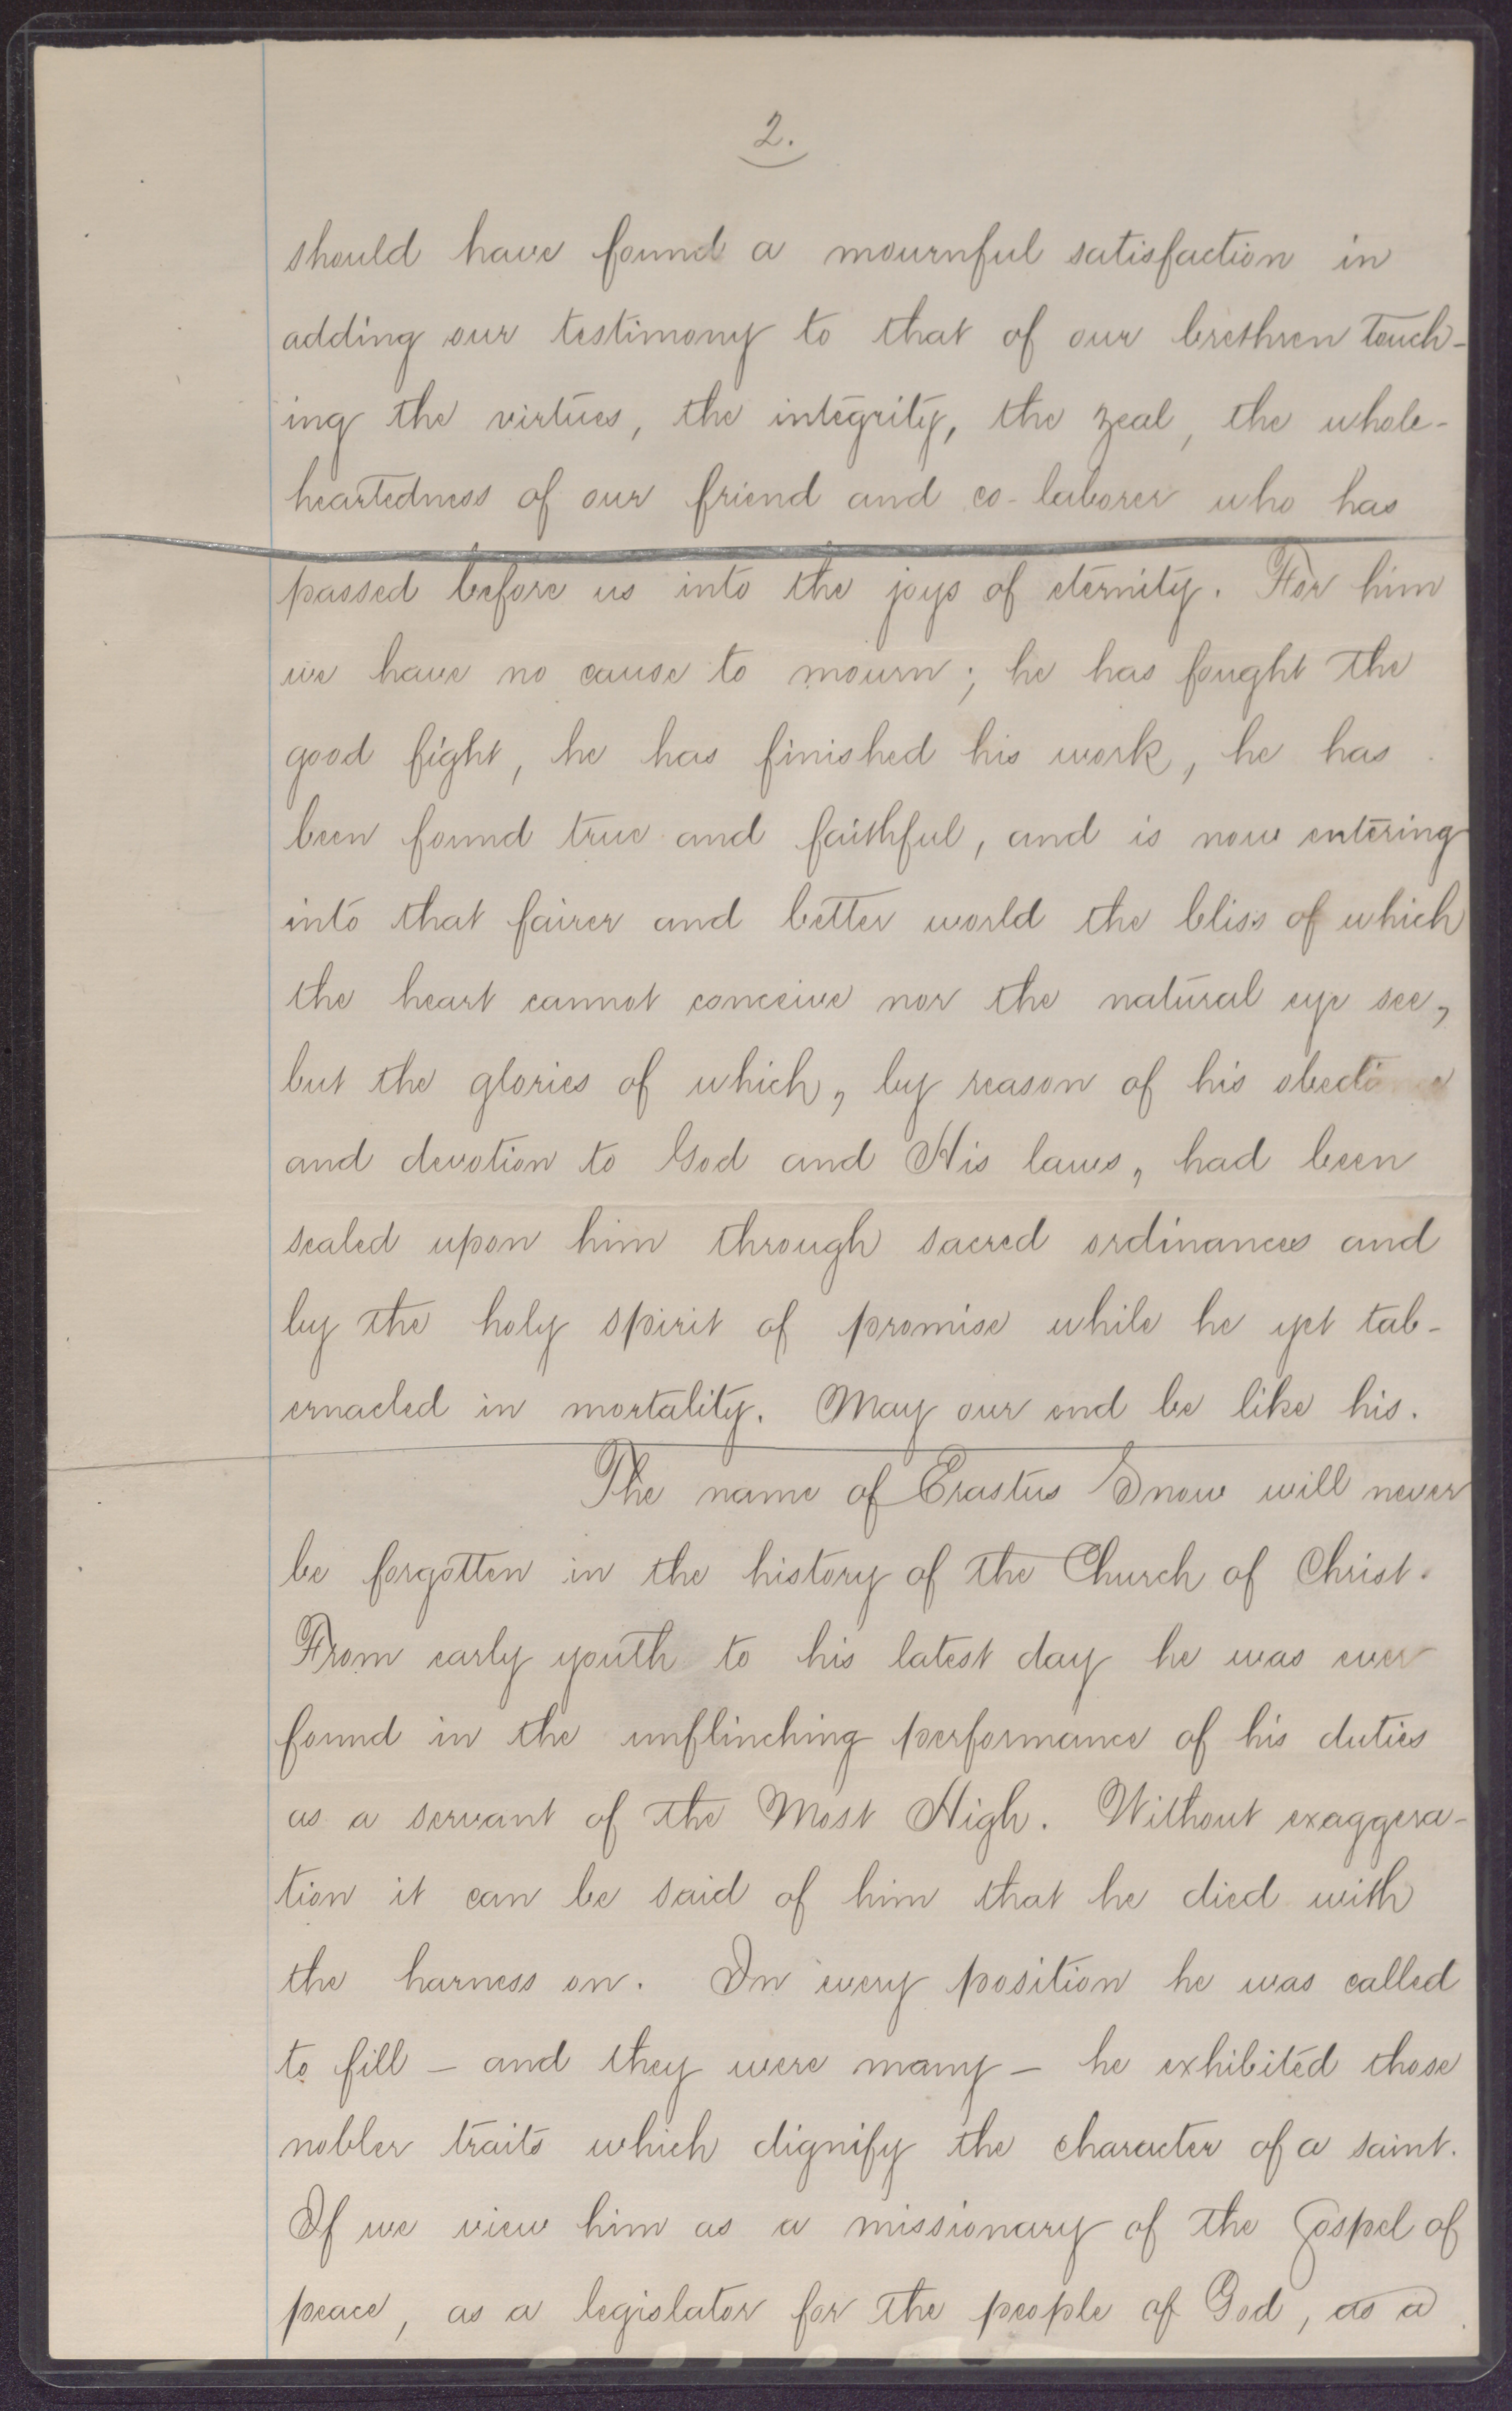 2.
should have found a mournful satisfaction in
adding our testimony to that of our brethren touch-
ing the virtues, the integrity, the zeal, the whole-
heartedness of our friend and co-laborer who has
passed before us into the joys of eternity. For him
we have no cause to mourn; he has fought the
good fight, he has finished his work, he has
been found true and faithful, and is now entering
into that fairer and better world the bliss of which
the heart cannot conceive nor the natural eye see,
but the glories of which, by reason of his
and devotion to God and His laws, had been
sealed upon him through sacred ordinances and
by the holy spirit of promise while he yet tab-
ernacled in mortality. May our end be like his.
The name of Erastus Snow will never
be forgotten in the history of the Church of Christ.
From early youth to his latest day he was ever
found in the unflinching performance of his duties
as a servant of the Most High. Without exaggera-
tion it can be said of him that he died with
the harness on. In every position he was called
to fill - and they were many - he exhibited those
nobler traits which dignify the character of a saint.
If we view him as a missionary of the Gospel of
peace, as a legislator for the people of God, as a